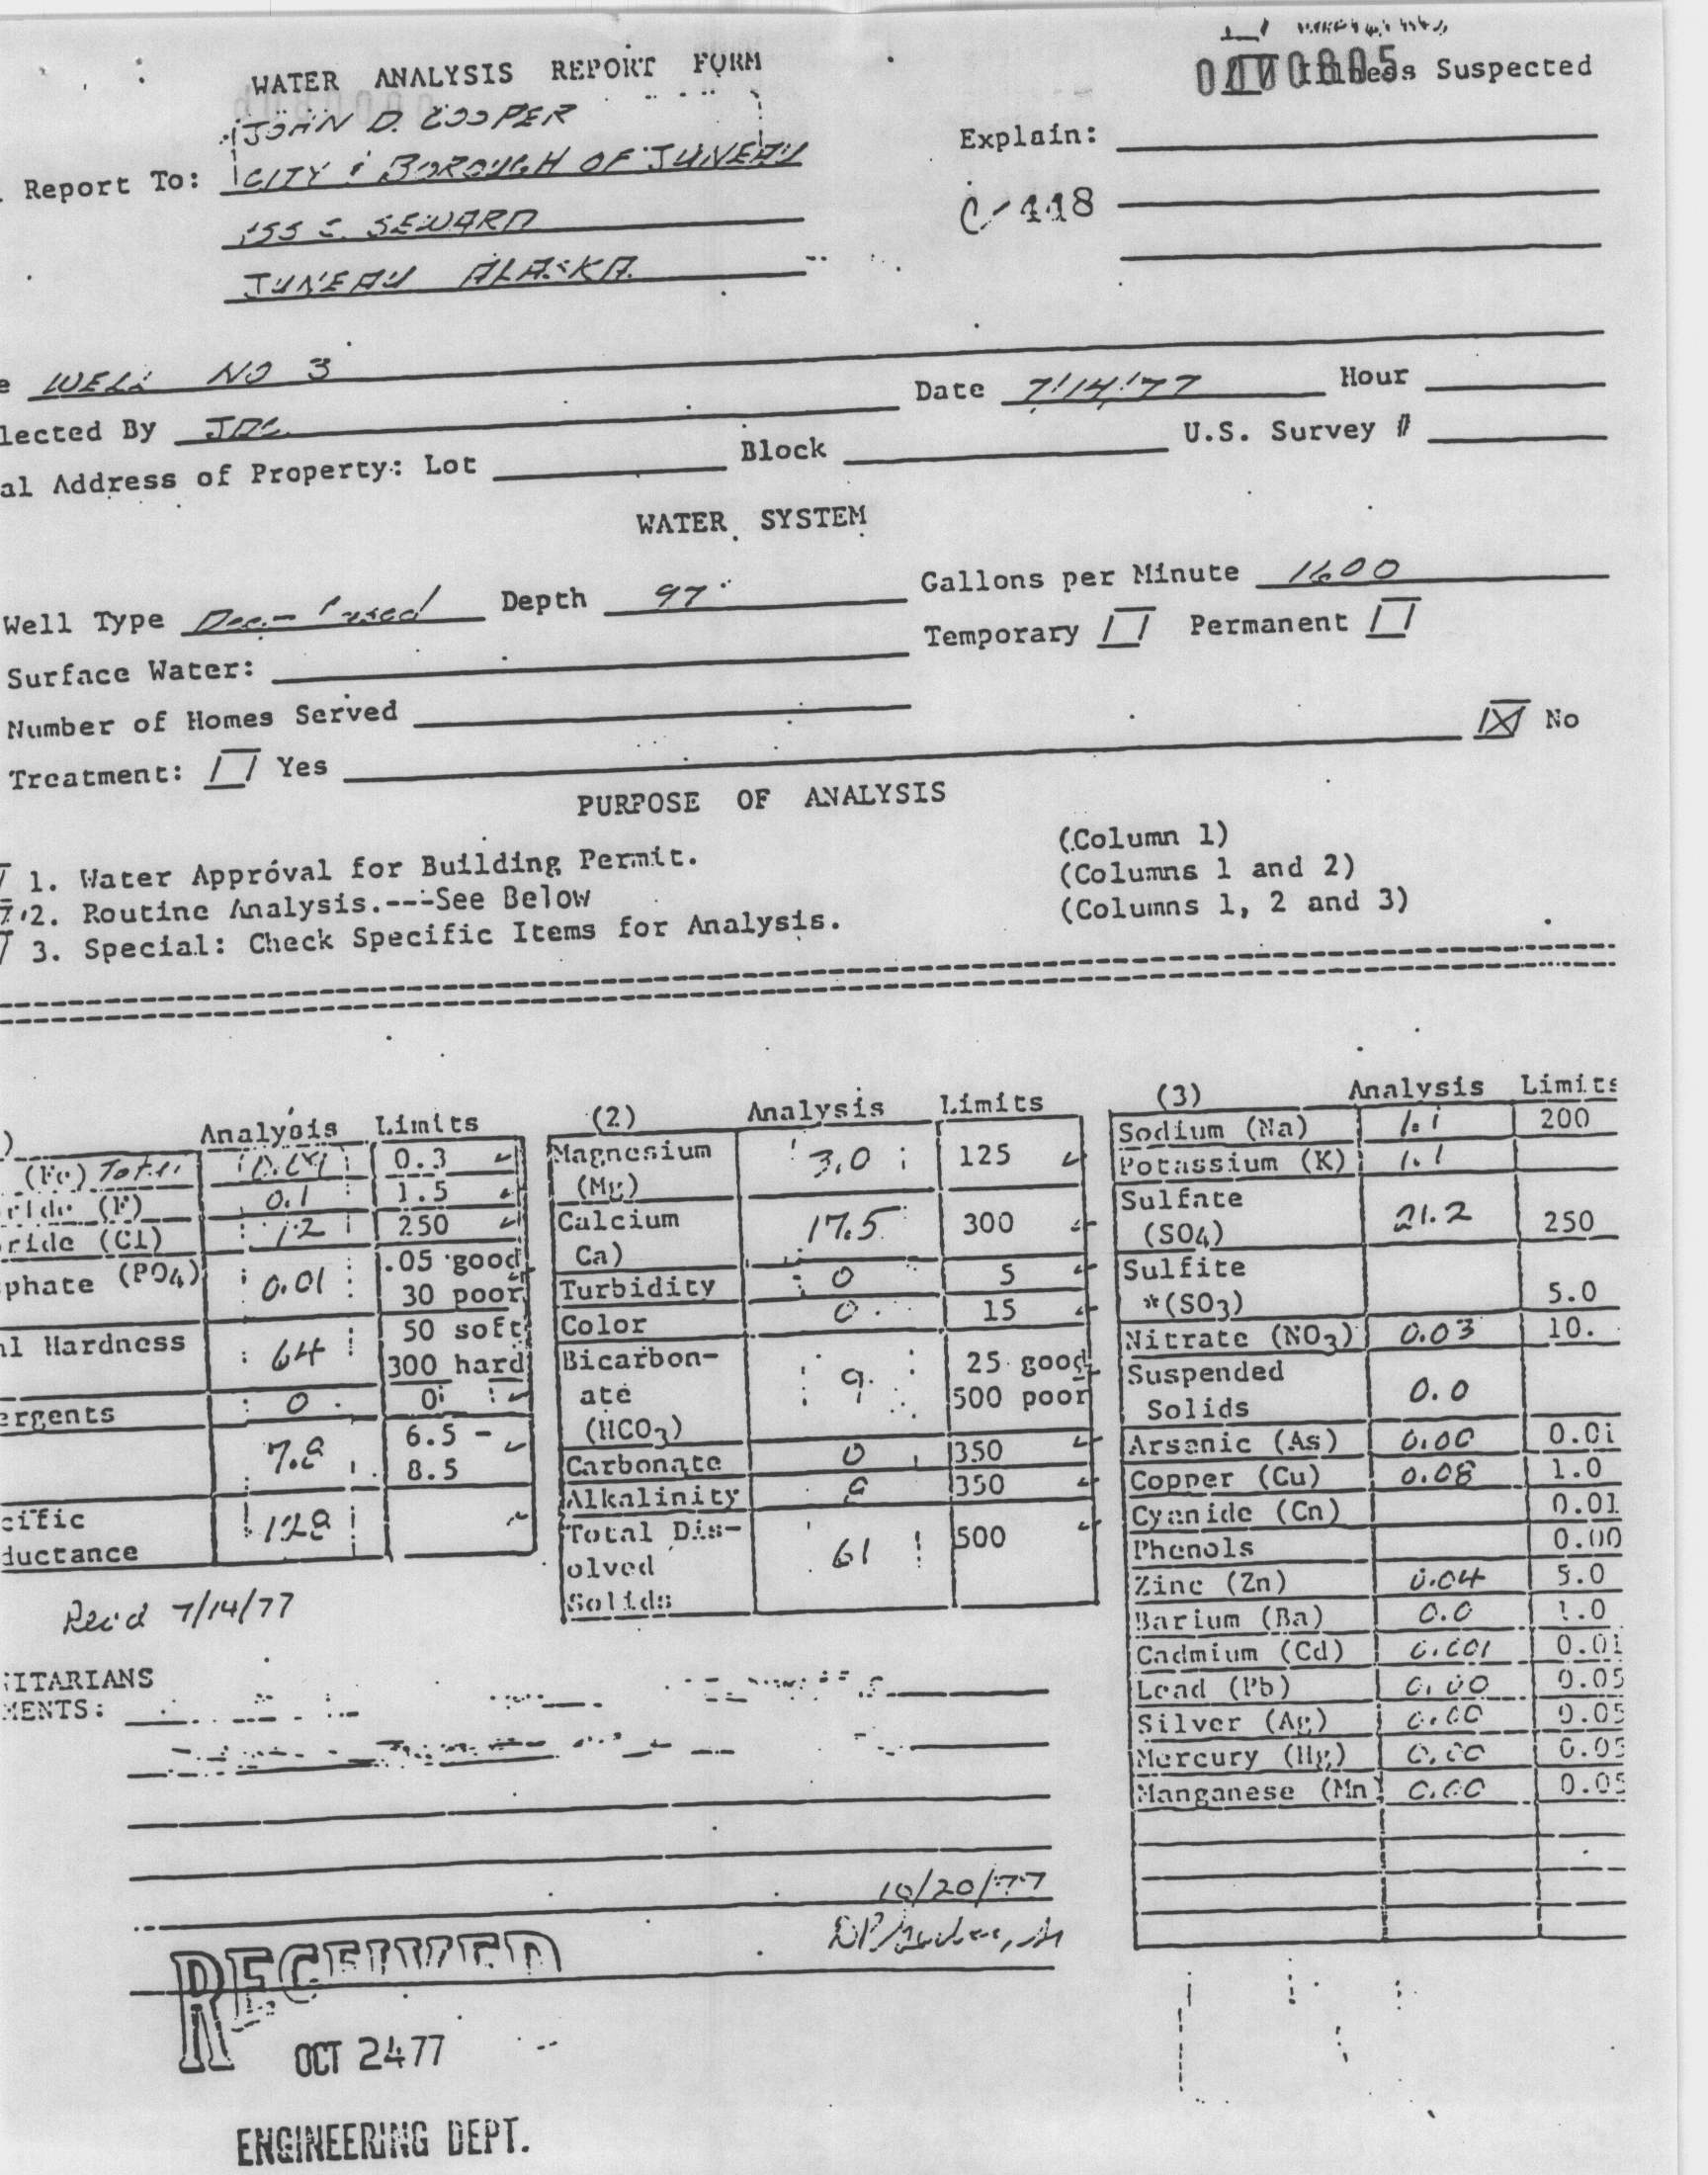 WATER ANALYSIS REPORT FORM
Suspected
JOHN D. COOPER
Explain:
Report To: CITY & BOROUGH OF JUNEAU
155 S. SEWARD
C-118
JUNEAU ALASKA
WELL NO 3
lected By JDC Date 7/14/77 Hour
al Address of Property: Lot Block U.S. Survey #
WATER SYSTEM
Well Type Depth 97' Gallons per Minute 1600
Surface Water: Temporary Permanent
Number of Homes Served
Treatment: Yes No
PURPOSE OF ANALYSIS
1. Water Approval for Building Permit. (Column 1)
2. Routine Analysis.---See Below (Columns 1 and 2)
3. Special: Check Specific Items for Analysis. (Columns 1, 2 and 3)
Analysis Limits
(Fe) Total 0.3
ride (F) 0.1 1.5
ride (Cl) 12 250
phate (PO4) 0.01 .05 good
30 poor
al Hardness 64 50 soft
300 hard
ergents 0 0
6.5 -
8.5
cific
ductance
Rec'd 7/14/77
(2) Analysis Limits
Magnesium
(Mg) 3.0 125
Calcium
Ca) 17.5 300
Turbidity 0 5
Color 0 15
Bicarbon-
ate
(HCO3) 9. 25 good
500 poor
Carbonate 0 350
Alkalinity 350
Total Dis-
olved
Solids 61 500
(3) Analysis Limits
Sodium (Na) 1.1 200
Potassium (K) 1.1
Sulfate
(SO4) 21.2 250
Sulfite
*(SO3) 5.0
Nitrate (NO3) 0.03 10.
Suspended
Solids 0.0
Arsenic (As) 0.00 0.01
Copper (Cu) 0.08 1.0
Cyanide (Cn) 0.01
Phenols 0.00
Zinc (Zn) 0.04 5.0
Barium (Ba) 0.0 1.0
Cadmium (Cd) 0.001 0.01
Lead (Pb) 0.00 0.05
Silver (Ag) 0.00 0.05
Mercury (Hg) 0.00 0.05
Manganese (Mn) 0.00 0.05
ITARIANS
MENTS:
10/20/77
RECEIVED
OCT 24 77
ENGINEERING DEPT.